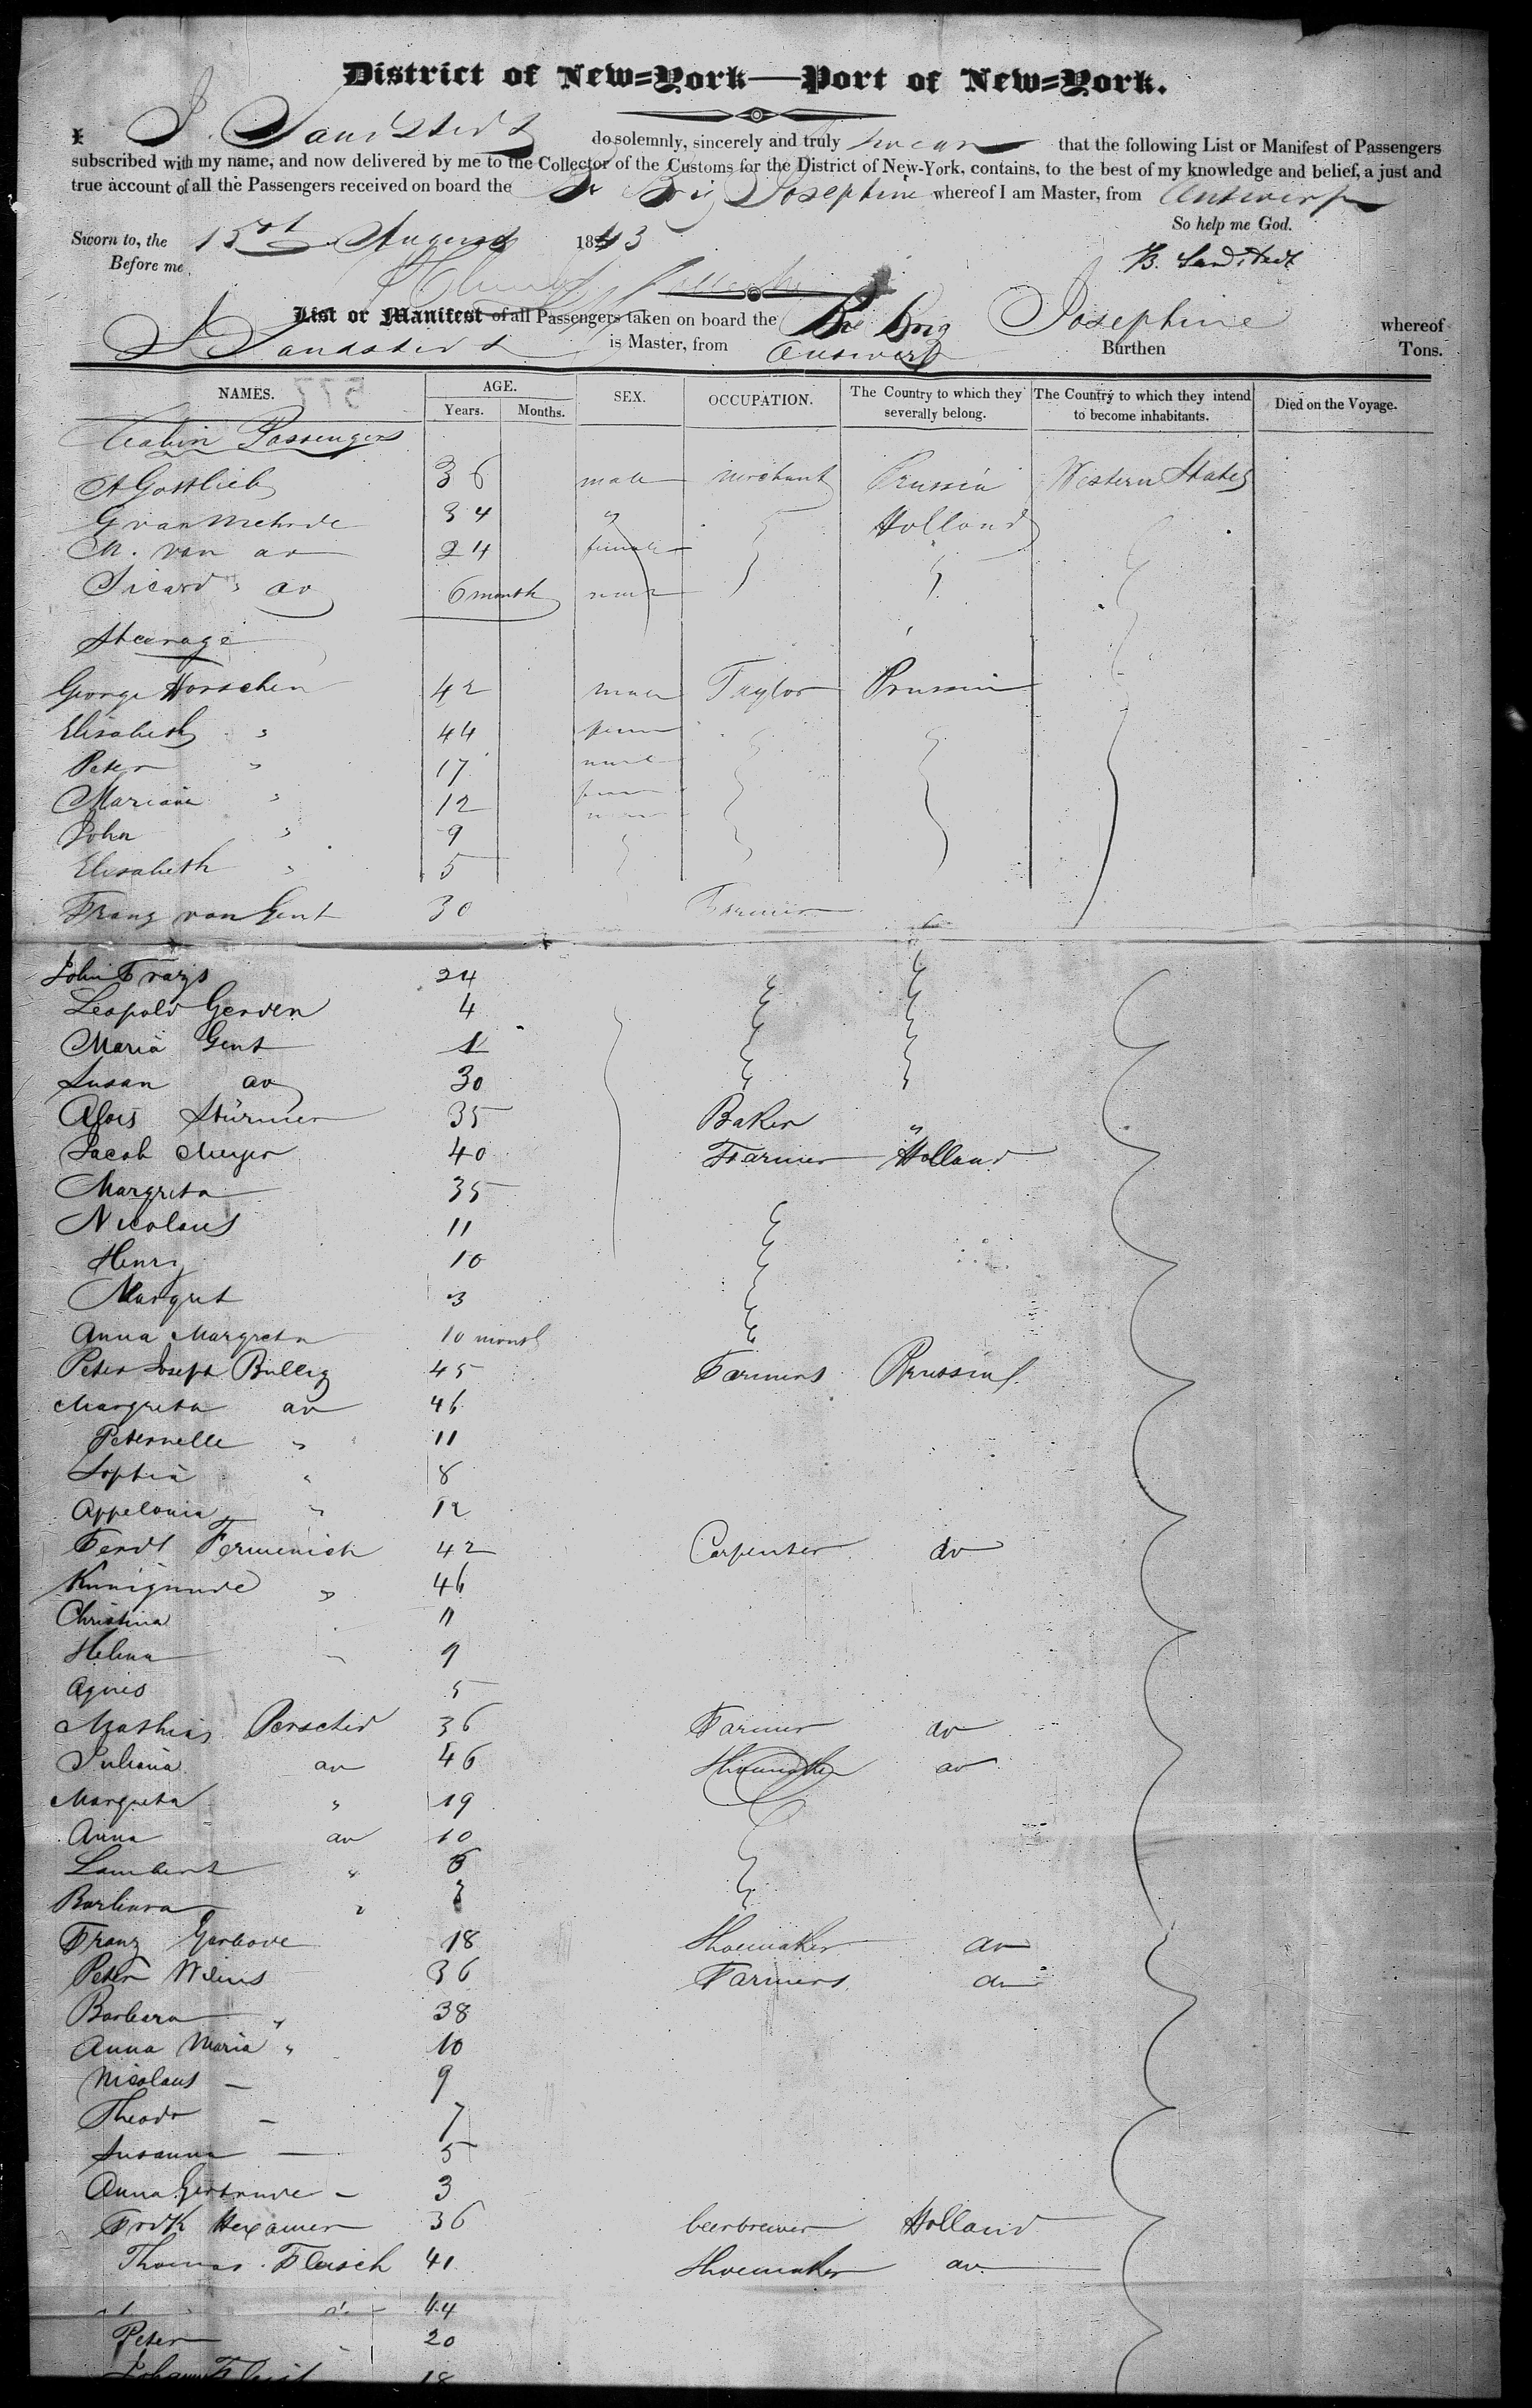 District of New=York—Port of New=York.
I J. Sandstedt do solemnly, sincerely and truly swear that the following List or Manifest of Passengers
subscribed with my name, and now delivered by me to the Collector of the Customs for the District of New-York, contains, to the best of my knowledge and belief, a just and
true account of all the Passengers received on board the Br Brig Josephine whereof I am Master, from Antwerp
So help me God.
Sworn to, the 15 August 1843
Before me
B. Sandstedt
List or Manifest of all Passengers taken on board the Bre Brig Josephine whereof
J Sandstedt is Master, from Antwerp Burthen Tons.
NAMES. AGE. Years. Months. SEX. OCCUPATION. The Country to which they severally belong. The Country to which they intend to become inhabitants. Died on the Voyage.
Cabin Passengers
A Gottlieb 36 male merchant Prussia Western States
G van Mehrde 34 " Holland
M. van do 24 female
Sicard do 6 month male
Stearage
George Horschen 42 male Taylor Prussia
Elisabeth " 44 fem
Peter " 17 male
Mariane " 12 fem
John " 9
Elisabeth " 5
Franz van Gent 30 Farmer
John Frays 24
Leopold Gerden 4
Maria Gent 1
Susan do 30
Alois Stürmer 35 Baker "
Jacob Meyer 40 Farmer Holland
Margreta 35
Nicolaus 11
Henry 10
Margret 3
Anna Margreta 10 month
Peter Joseph Bullig 45 Farmers Prussia
Margreta do 46
Peternelle " 11
Sophia " 8
Appelonia " 12
Ferdt Fermenich 42 Carpenter do
Kunigunde " 46
Christina 11
Helena 9
Agnes 5
Mathias Perscheid 36 Farmer do
Juliana do 46 Shoemaker do
Margreta " 19
Anna do 10
Lambert "
Barbara "
Franz Gerbode 18 Shoemaker do
Peter Wilms 36 Farmers do
Barbara " 38
Anna Maria " 10
Nicolaus — 9
Theodr — 7
Susanna — 5
Anna Gertrude — 3
Frdk Hexamer 36 beerbrewer Holland
Thomas Flasch 41 Shoemaker do
44
Peter 20
Johann 18